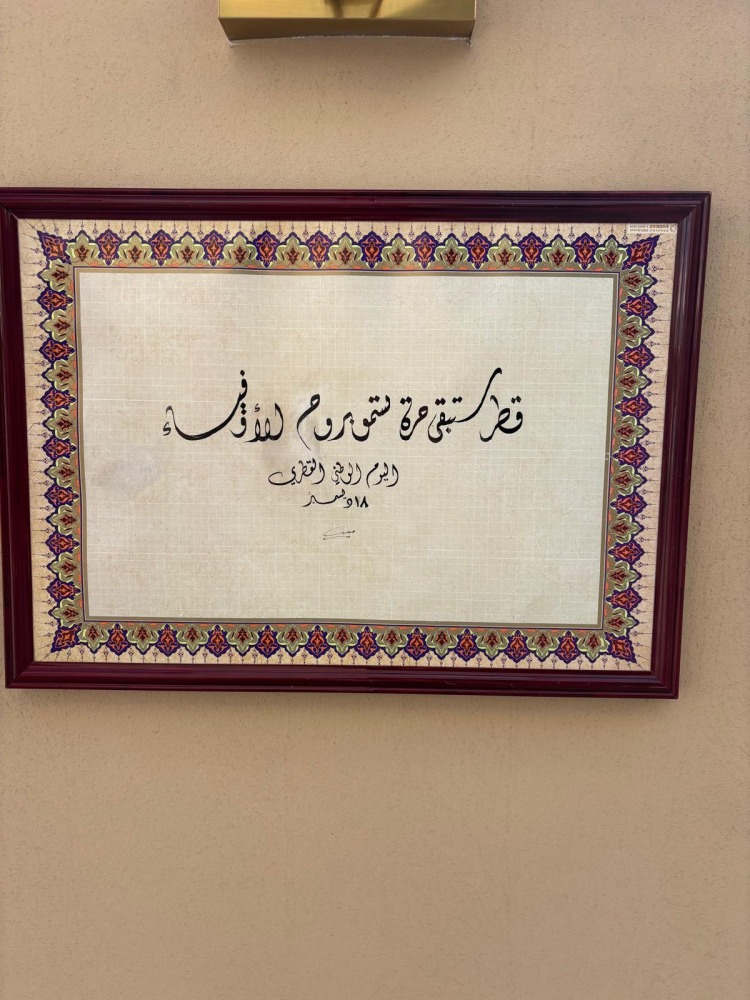 قطر ستبقى حرة تسمو بروح الأوفياء
اليوم الوطني القطري
١٨ ديسمبر